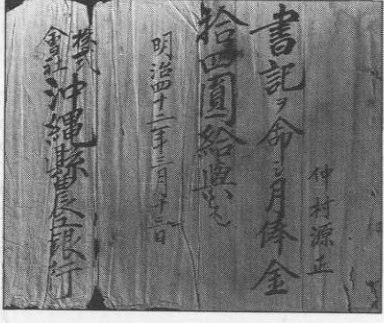 仲村源正
書記ヲ命シ月俸金
拾四圓給與ス
明治四十二年三月十三日
株式會社沖縄縣農工銀行